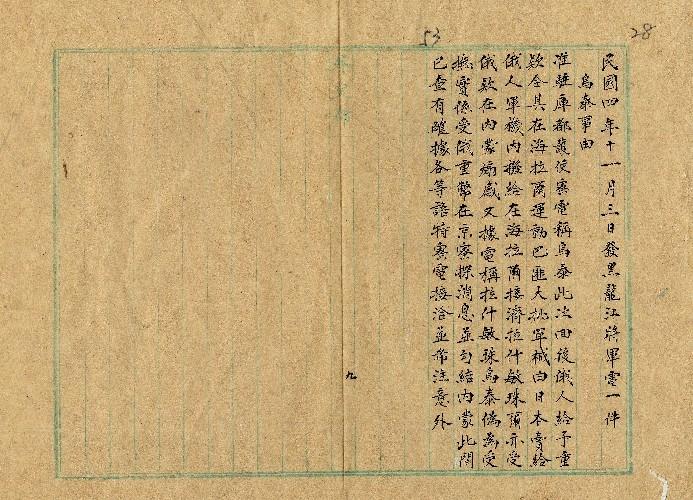 28
53
民國四年十一月三日發黑龍江將軍電一件
烏泰事由
准駐庫都護使密電稱烏泰此次回後俄人給予重
款令其在海拉爾運動巴匪大批軍械由日本賣給
俄人軍機內撥給在海拉爾接濟拉什敏珠爾亦受
俄款在內蒙煽惑又據電稱拉什敏珠烏泰偽為受
撫實係受俄重幣在京密探消息並勾結內蒙此間
已查有確據各等語特密電接洽並希注意外
九